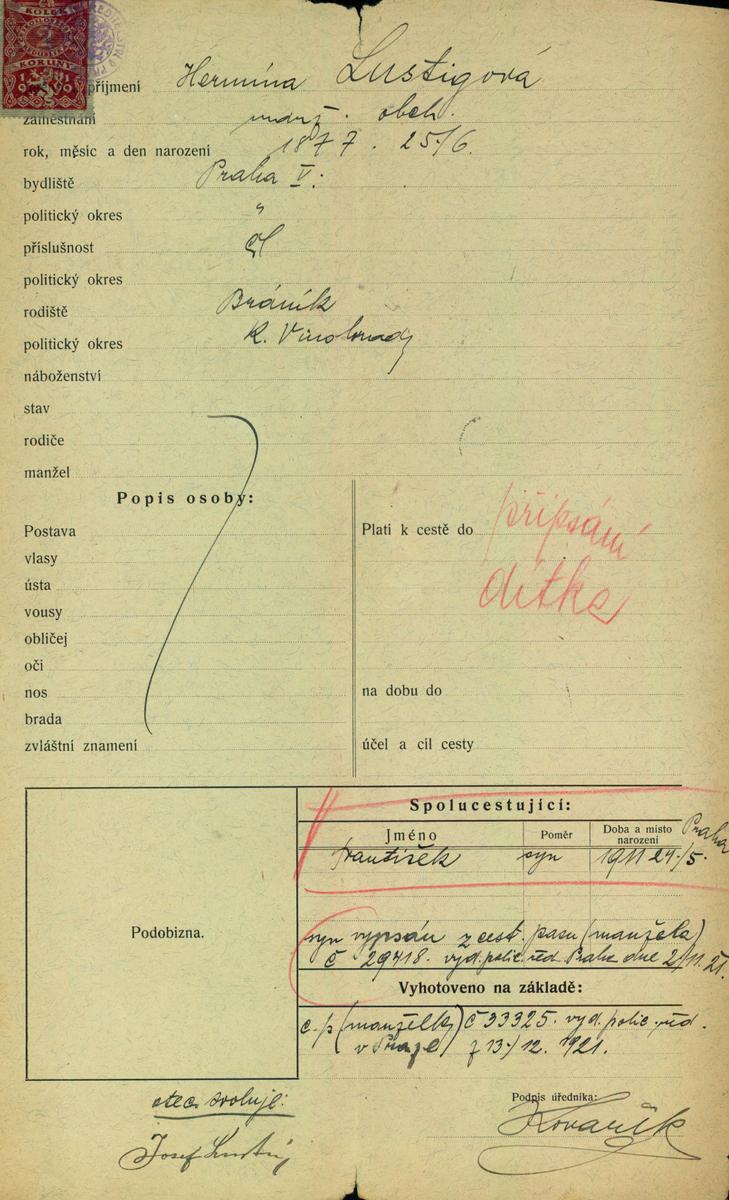 KOLEK
KORUNY
příjmení Hermína Lustigová
zaměstnání obch.
rok, měsíc a den narození 1877. 25/6.
bydliště Praha V.
politický okres "
příslušnost
politický okres
rodiště Bráník
politický okres K. Vinohrady
náboženství
stav
rodiče
manžel
Popis osoby:
Postava
vlasy
ústa
vousy
obličej
oči
nos
brada
zvláštní znamení
Platí k cestě do připsání
dítka
na dobu do
účel a cíl cesty
Podobizna.
Spolucestující:
Jméno Poměr Doba a místo narození Praha
František syn 1911 24./5.
syn vypsán z cest. pasu (manžela)
č 29418. vyd. polic. řed. Praha dne 2/11. 21.
Vyhotoveno na základě:
c. p. (manželky) č 33325. vyd. polic. řed.
v Praze z 13./12. 1921.
otec svoluje:
Josef Lustig
Podpis úředníka:
Kovařík